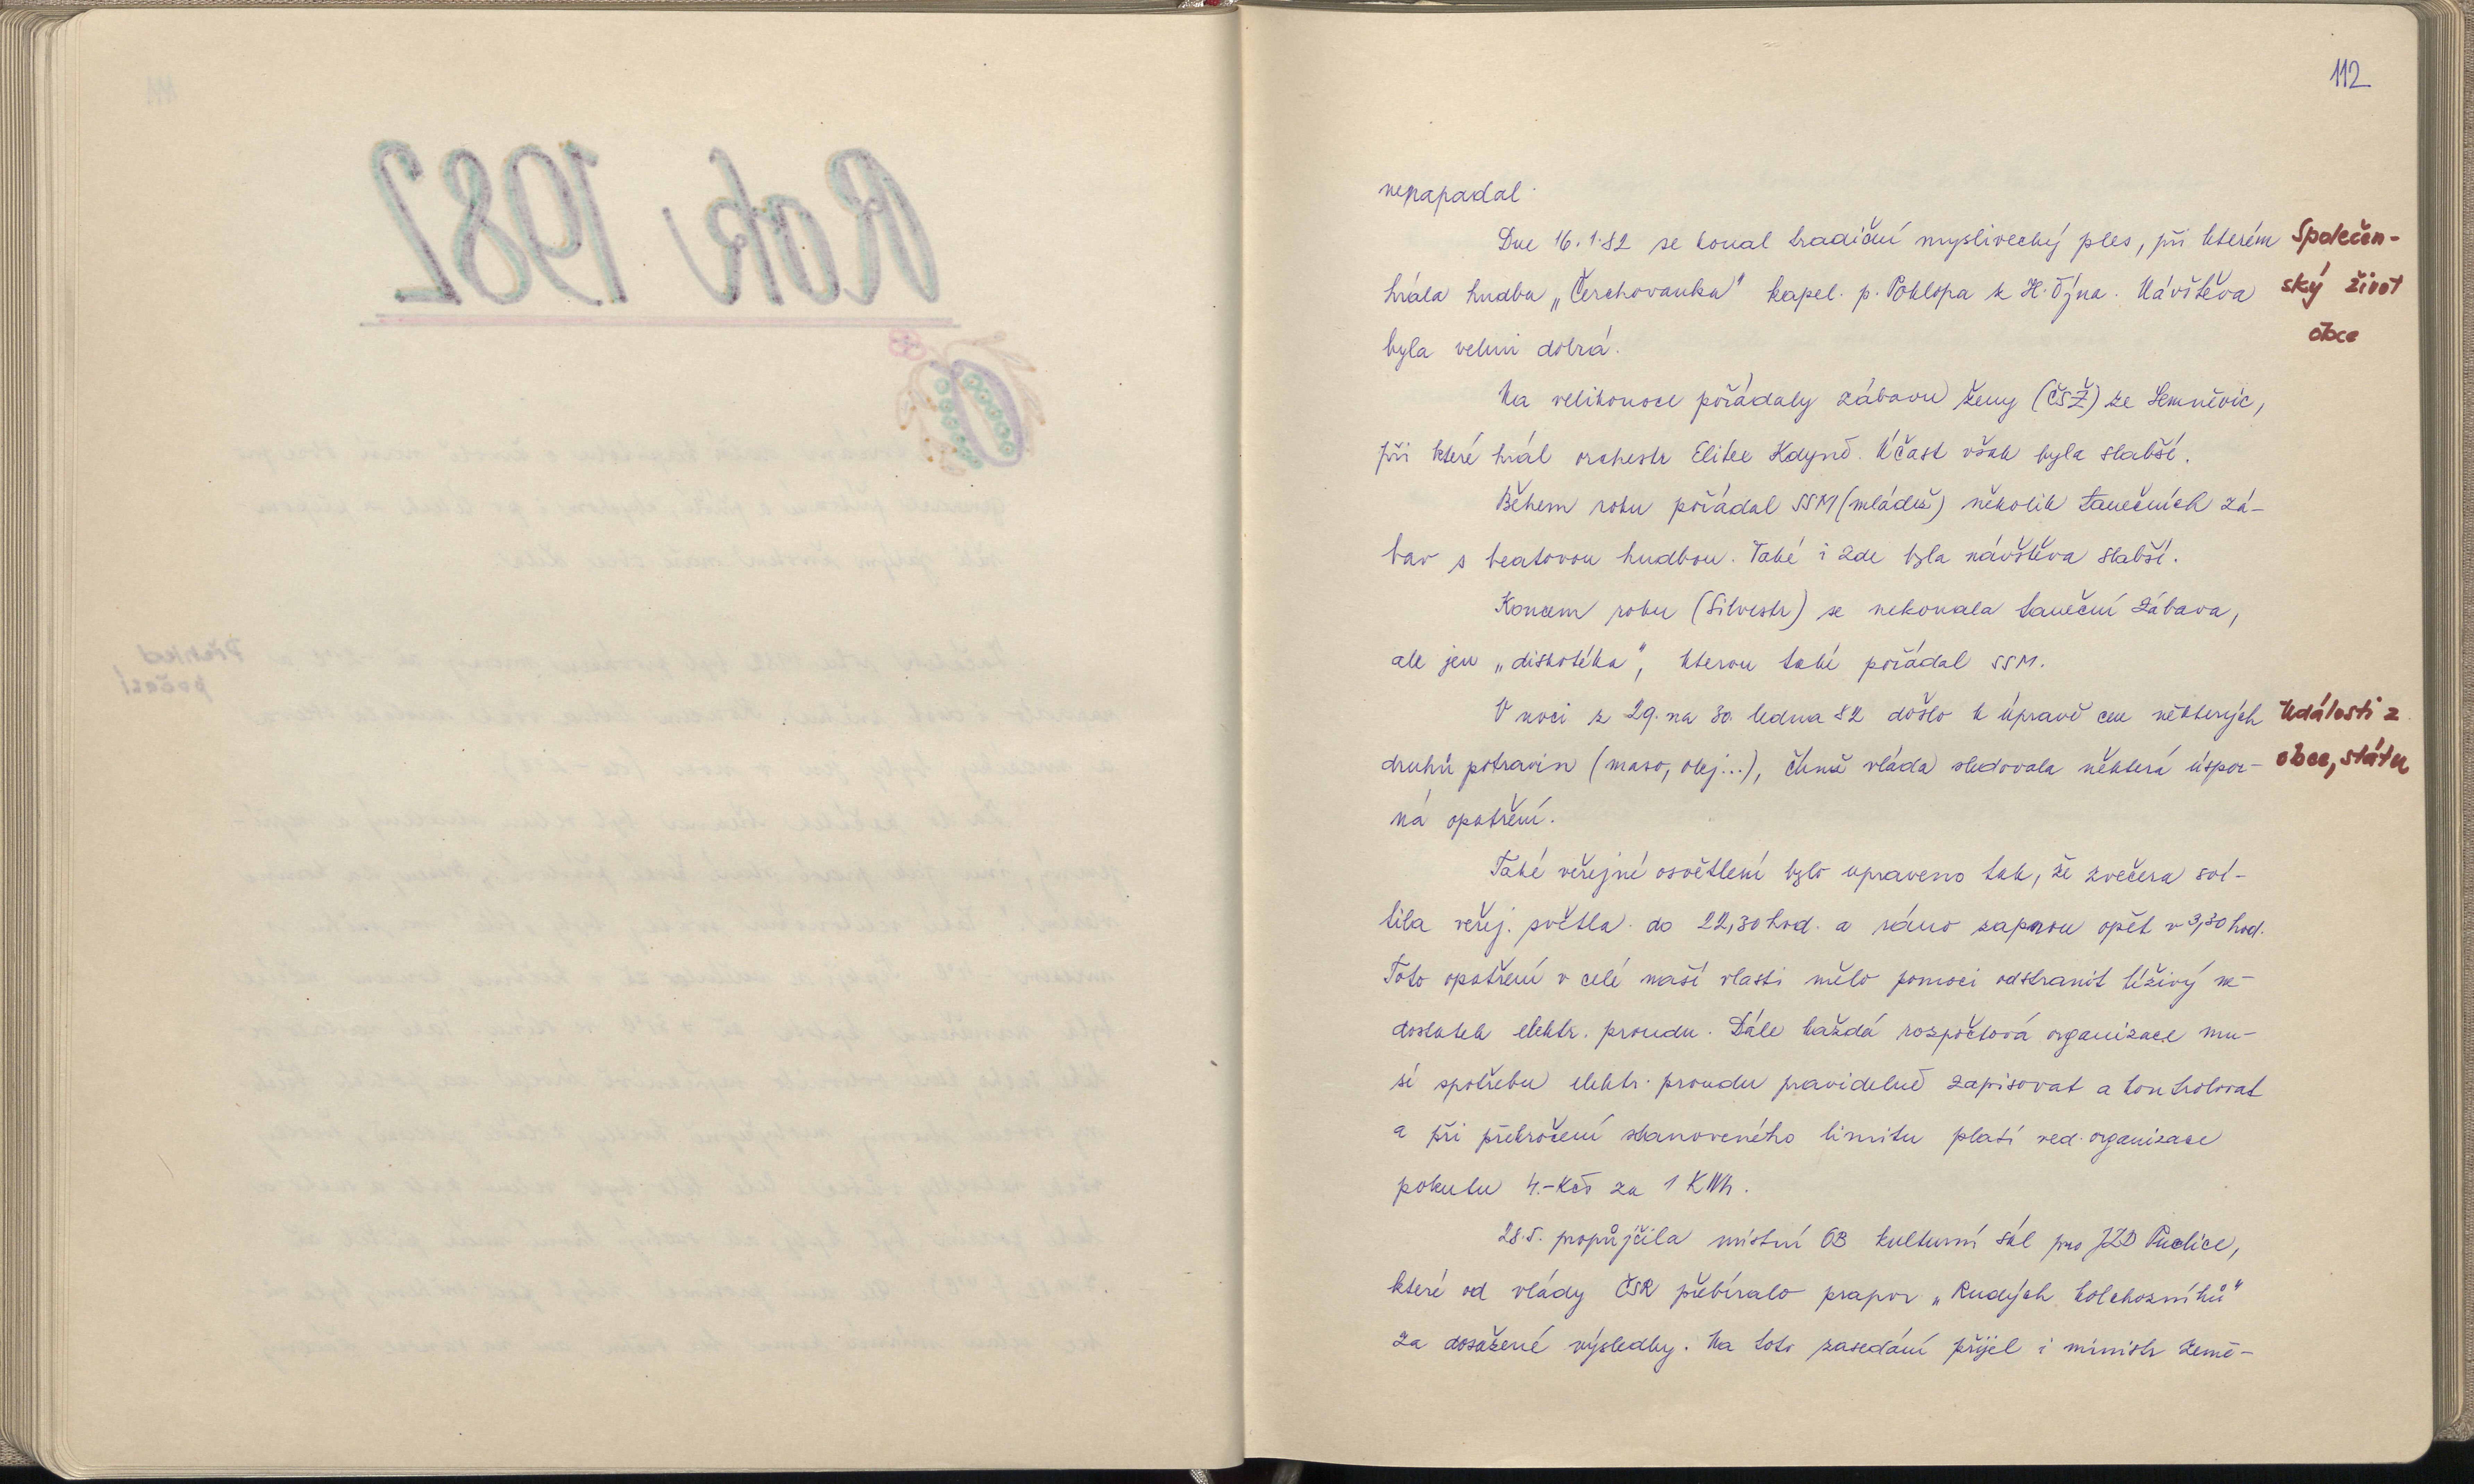 112
nenapadal.
Dne 16.1.82 se konal tradiční myslivecký ples, při kterém
Společen-
hrála hudba „Čerchovanka" kapel. p. Poklopa z H. Týna. Návštěva
ský život
byla velmi dobrá.
obce
Na velikonoce pořádaly zábavu ženy (ČSŽ) ze Semněvic,
při které hrál orchestr Elitex Kdyně. Účast však byla slabší.
Během roku pořádal SSM (mládež) několik tanečních zá-
bav s beatovou hudbou. Také i zde byla návštěva slabší.
Koncem roku (Silvestr) se nekonala taneční zábava,
ale jen „diskotéka", kterou také pořádal SSM.
V noci z 29. na 30. ledna 82 došlo k úpravě cen některých
Události z
druhů potravin (maso, olej...), čímž vláda sledovala některá úspor-
obce, státu
ná opatření.
Také veřejné osvětlení bylo upraveno tak, že zvečera sví-
tila veřej. světla do 22,30 hod. a ráno zapnou opět v 3,30 hod.
Toto opatření v celé naší vlasti mělo pomoci odstranit tíživý ne-
dostatek elektr. proudu. Dále každá rozpočtová organizace mu-
sí spotřebu elektr. proudu pravidelně zapisovat a kontrolovat
a při překročení stanoveného limitu platí ved. organizace
pokutu 4.- Kčs za 1 KWh.
28.5. propůjčila místní OB kulturní sál pro JZD Puclice,
které od vlády ČSR přebíralo prapor „Rudých kolchozníků"
za dosažené výsledky. Na toto zasedání přijel i ministr země-